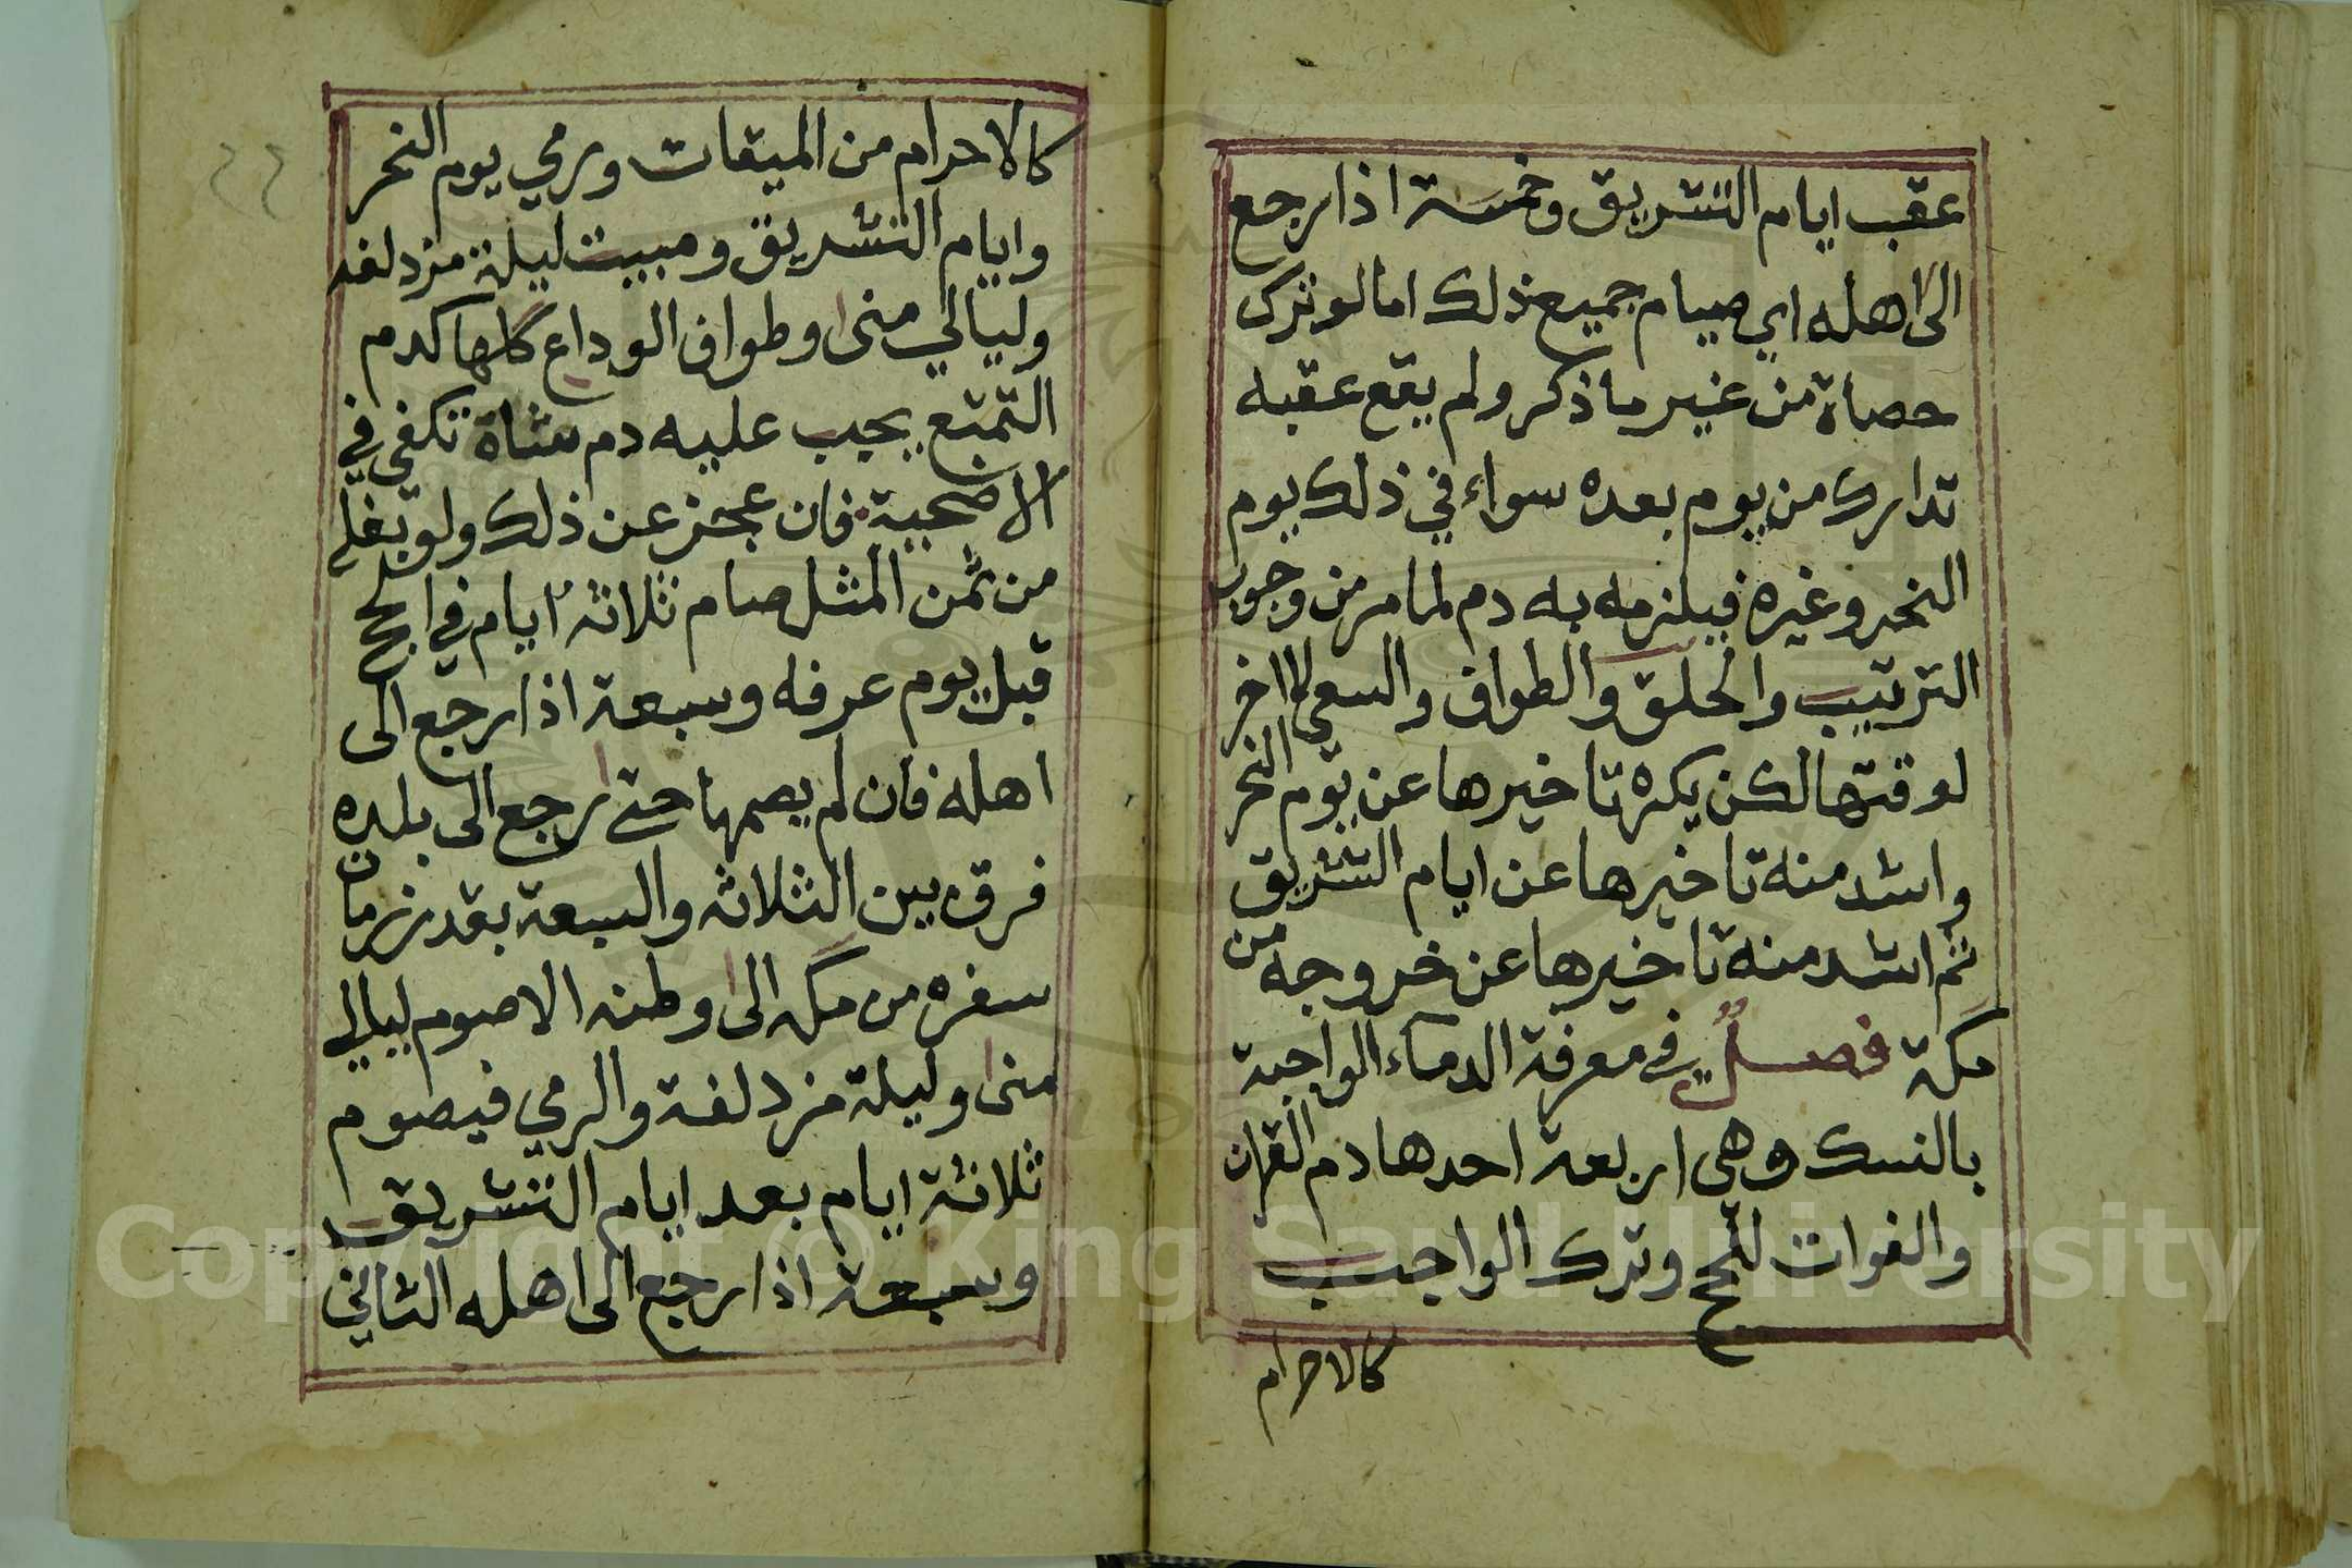 عقب ايام التشريق وخمسة اذا رجع
الى اهله اي صيام جميع ذلك اما لو ترك
حصاة من غير ما ذكر ولم يقع عقبه
تدارك من يوم بعده سواء في ذلك يوم
النحر وغيره فيلزمه به دم لما مر من وجوب
الترتيب والحلق والطواف والسعي لا اخر
لوقتها لكن يكره تاخيرها عن يوم النحر
واشد منه تاخيرها عن ايام التشريق
ثم اشد منه تاخيرها عن خروجه من
مكة فصل في معرفة الدماء الواجبة
بالنسك وهى اربعة احدها دم القران
والفوات للحج وترك الواجب
كالاحرام
٤٤
كالاحرام من الميقات ورمي يوم النحر
وايام التشريق ومبيت ليلة مزدلفه
وليالي منى وطواف الوداع كلها كدم
التمتع يجب عليه دم شاة تكفى في
الاضحية فان عجز عن ذلك ولو بغلي
من ثمن المثل صام ثلاثة ايام في الحج
قبل يوم عرفه وسبعة اذا رجع الى
اهله فان لم يصمها حتى رجع الى بلده
فرق بين الثلاثه والسبعة بقدر زمان
سفره من مكه الى وطنه الا صوم ليالي
منى وليلة مزدلفة والرمي فيصوم
ثلاثة ايام بعد ايام التشريق
وسبعة اذا رجع الى اهله الثاني
Copyright © King Saud University